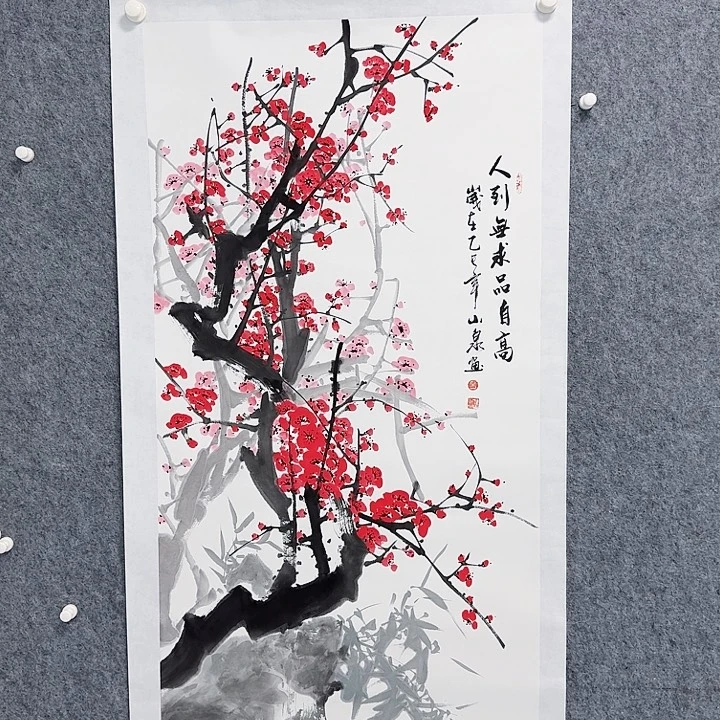 人到無求品自高
歲在乙巳年山泉画